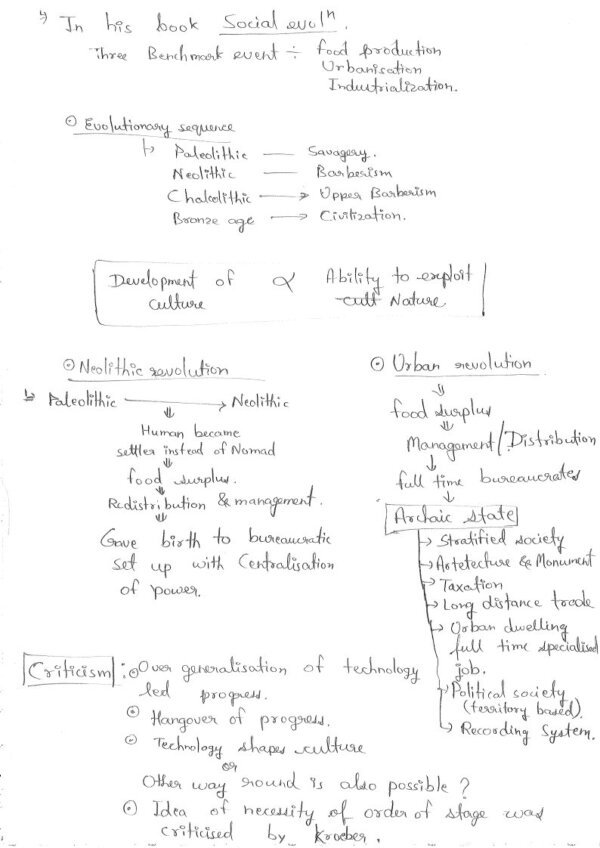 ↳ In his book Social evolⁿ.
Three Benchmark event ÷ food production
Urbanisation
Industrialization.
⊙ Evolutionary sequence
↳ Paleolithic — Savagery.
Neolithic — Barberism
Chalcolithic → Upper Barberism
Bronze age → Civilization.
Development of culture ∝ Ability to exploit
Nature
⊙ Neolithic revolution
↳ Paleolithic → Neolithic
⇓
Human became
settler instead of Nomad
⇓
food surplus.
⇓
Redistribution & management.
⇓
Gave birth to bureaucratic
set up with Centralisation
of power.
⊙ Urban revolution
⇓
food surplus
⇓
Management/Distribution
↓
full time bureaucrates
↓
Archaic state
↳ Stratified society
↳ Artetecture & Monument
↳ Taxation
↳ Long distance trade
↳ Urban dwelling
full time specialised
job.
↳ Political society
(territory based).
↳ Recording System.
Criticism : ⊙ Over generalisation of technology
led progress.
⊙ Hangover of progress.
⊙ Technology shapes culture
or
Other way round is also possible ?
⊙ Idea of necessity of order of stage was
criticised by Kroeber.